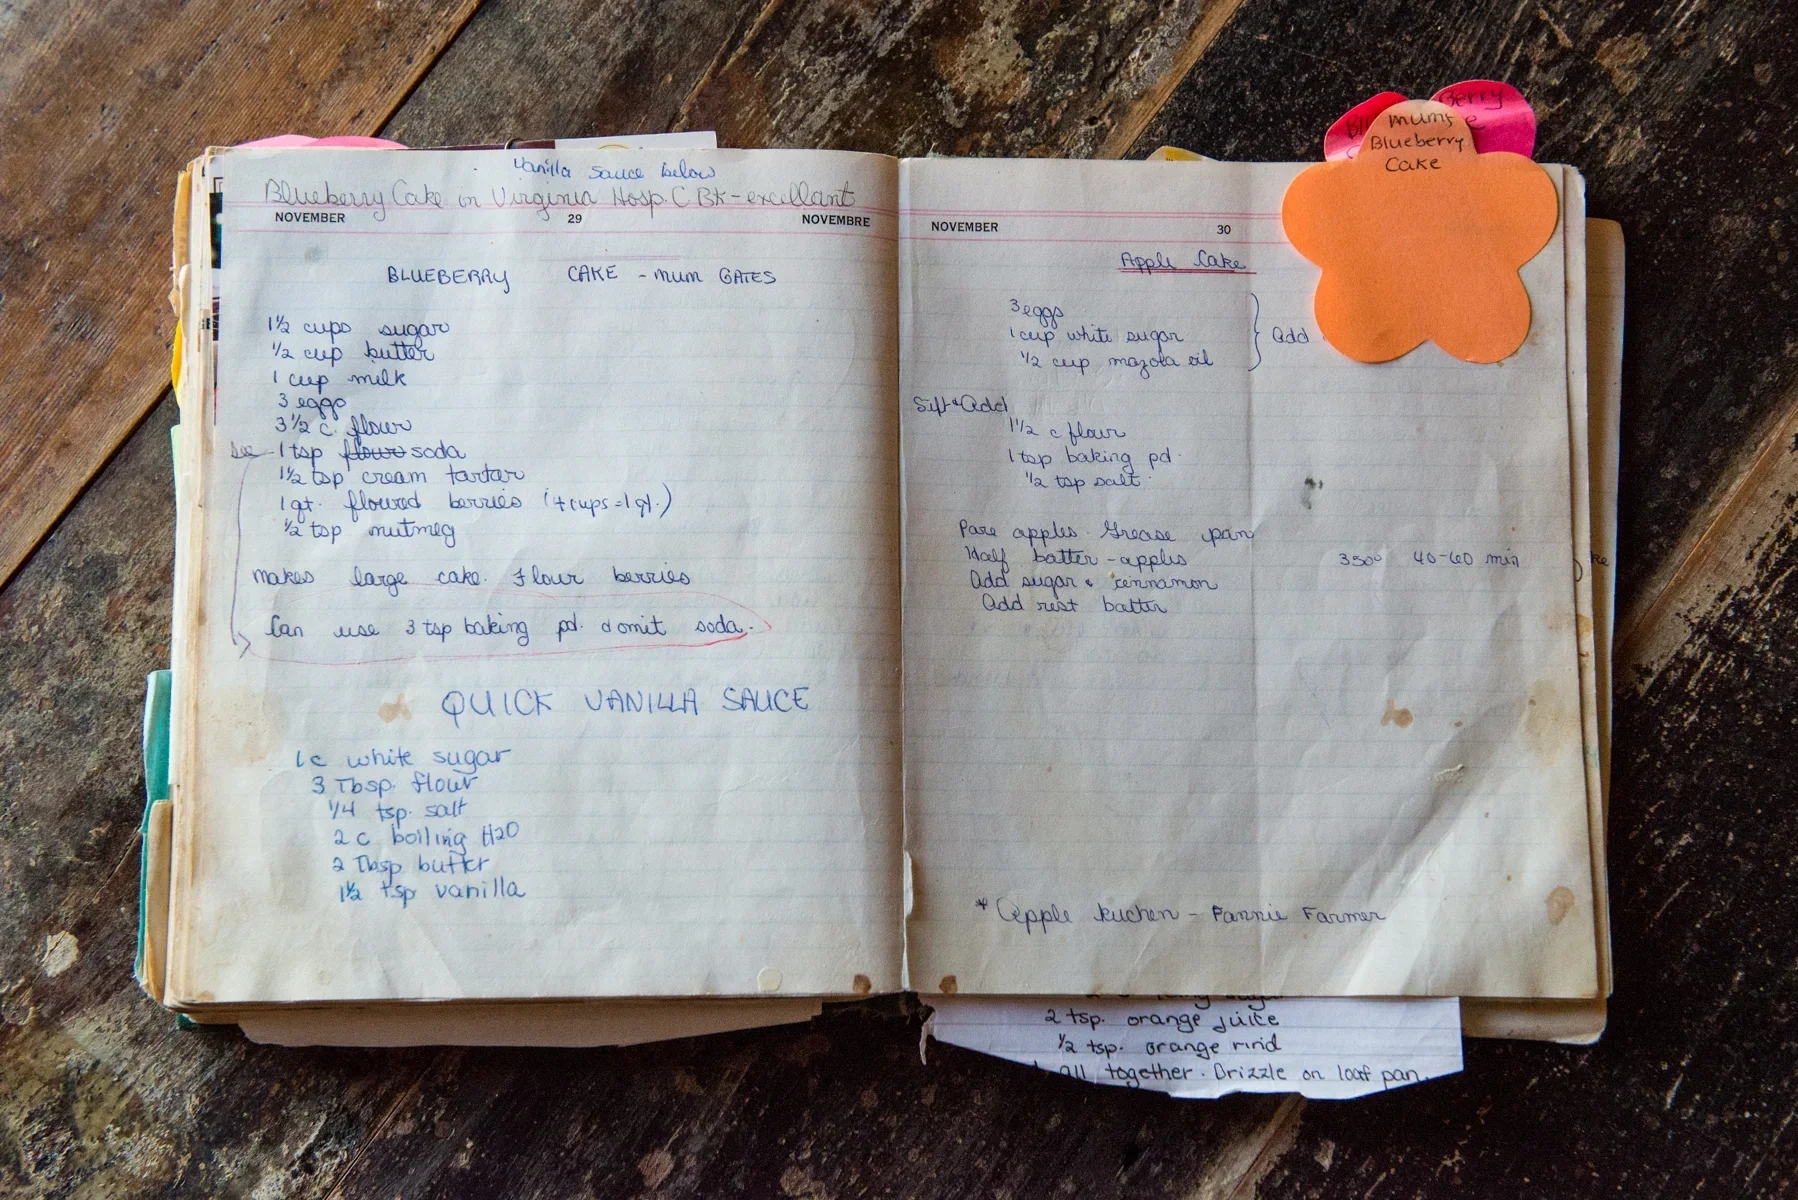 Vanilla sauce below
Blueberry Cake in Virginia Hosp. C BK - excellant
NOVEMBER 29 NOVEMBRE
BLUEBERRY CAKE - MUM GATES
1½ cups sugar
½ cup butter
1 cup milk
3 eggs
3 ½ c. flour
see 1 tsp flour soda
1½ tsp cream tartar
1 qt. floured berries (4 cups = 1 qt.)
½ tsp nutmeg
makes large cake. Flour berries
Can use 3 tsp baking pd. & omit soda.
QUICK VANILLA SAUCE
1 c white sugar
3 Tbsp. flour
1/4 tsp. salt
2 c boiling H2O
2 Tbsp butter
1½ tsp vanilla
NOVEMBER 30
Apple Cake
3 eggs
1 cup white sugar
½ cup mazola oil
Add
Sift & Add
1½ c flour
1 tsp baking pd.
½ tsp salt.
Pare apples. Grease pan
Half batter - apples 350° 40-60 min
Add sugar & cinnamon
Add rest batter
* Apple Kuchen - Fannie Farmer
Berry
mums
Blueberry
Cake
2 tsp. orange juice
½ tsp. orange rind
all together. Drizzle on loaf pan.